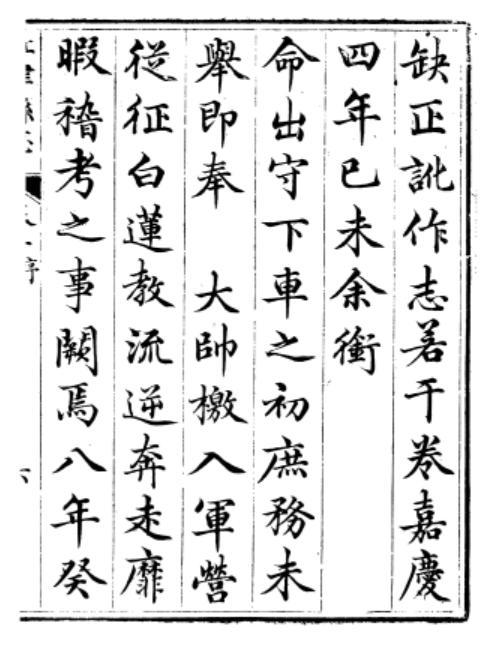 缺正訛作志若干卷嘉慶
四年已未余銜
命出守下車之初庶務未
舉即奉　大帥檄入軍營
從征白蓮教流逆奔走靡
暇稽考之事闕焉八年癸
序
六